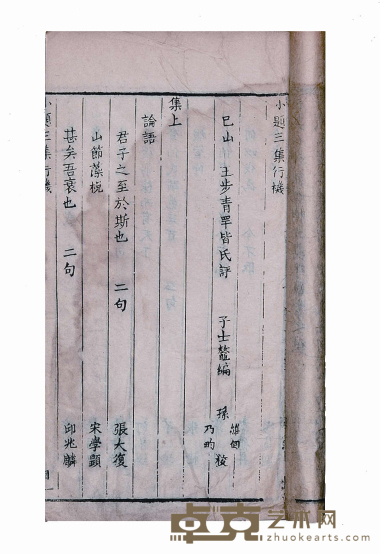 小題三集行機
巳山 王步青罕皆氏評 子士鼇編 孫 維甸 乃昀 校
集上
論語
君子之至於斯也 二句 張大復
山節藻梲 宋學顥
甚矣吾衰也 二句 邱兆麟
小題三集行機
卓克艺术网
zhuokearts.com